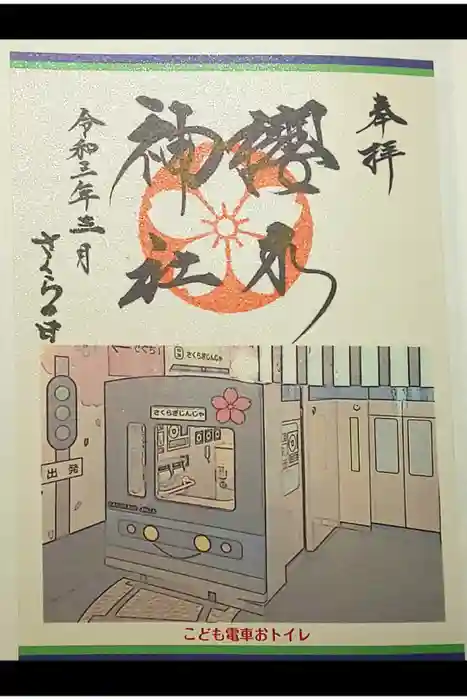 奉拝
櫻木
神社
令和三年三月
さくらの日
さくらぎじんじゃ
さくらぎじんじゃ
出発
こども電車おトイレ